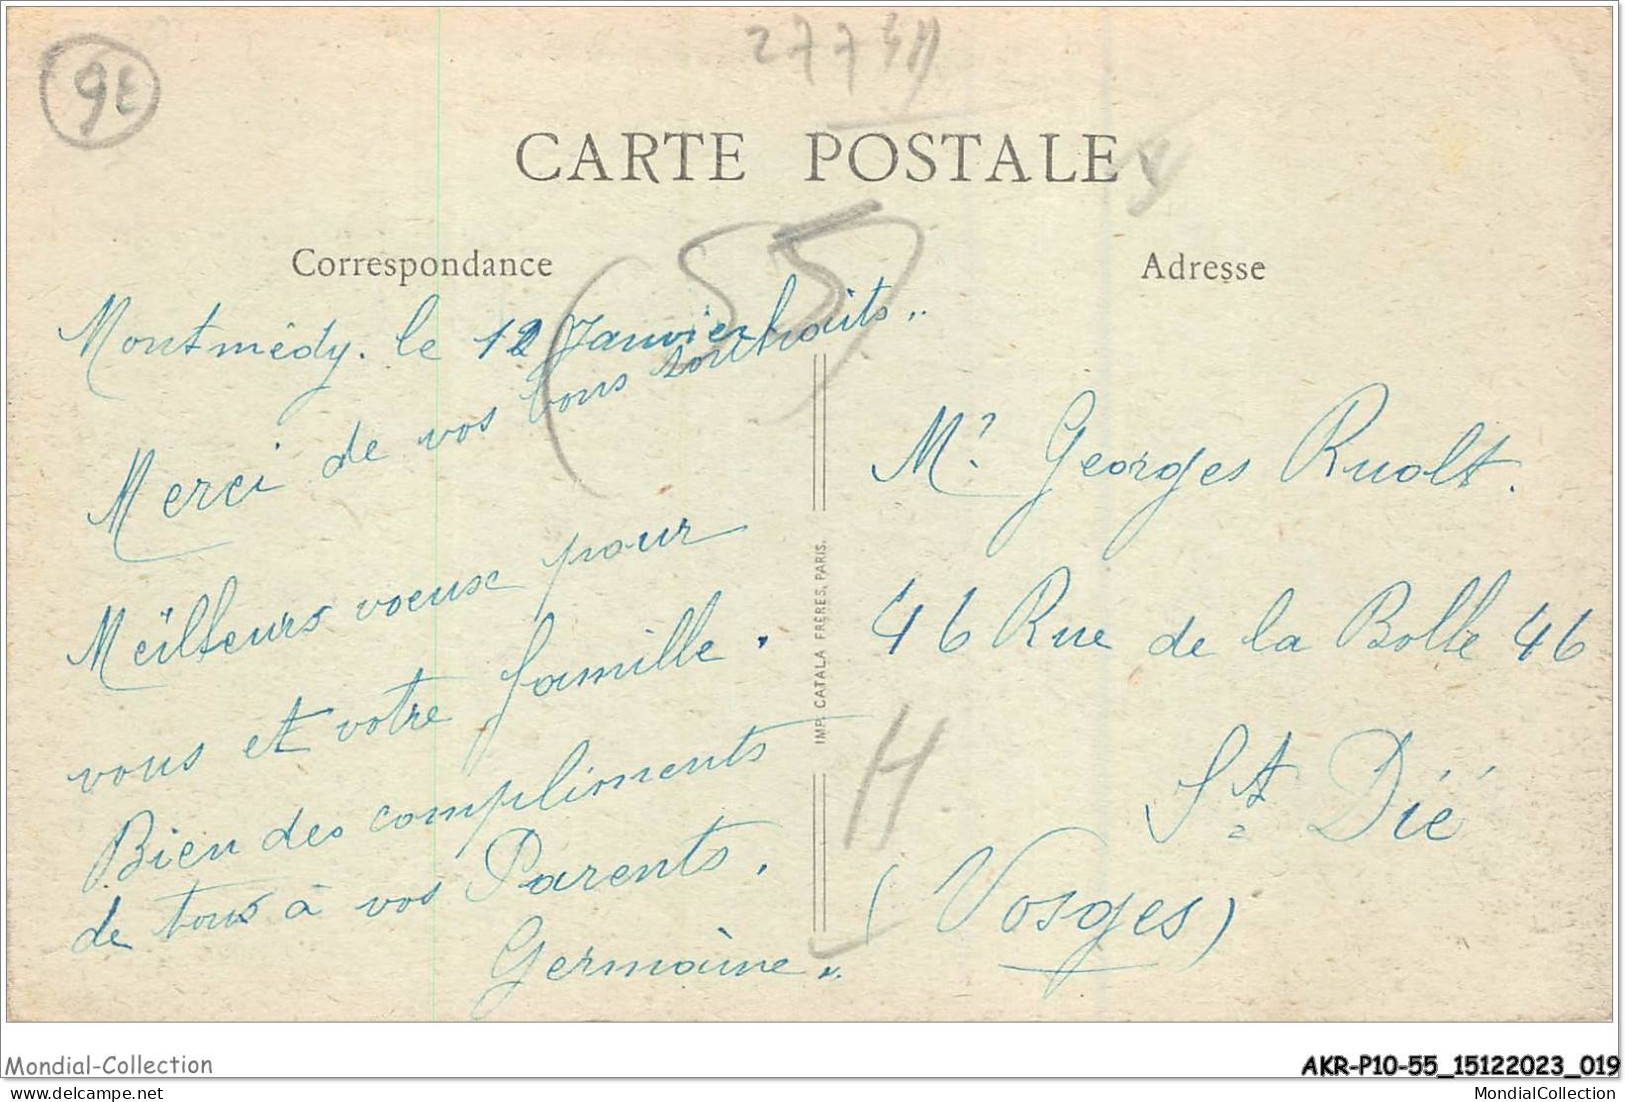 9E
2775H
CARTE POSTALE
(55)
Correspondance
Adresse
Montmédy. le 12 Janvier
Merci de vos bons souhaits..
Meilleurs voeux pour
vous et votre famille.
Bien des compliments
de tous à vos Parents.
Germaine..
IMP. CATALA FRERES, PARIS.
Mr. Georges Ruolt.
46 Rue de la Bolle 46
St Dié
(Vosges)
H
Mondial-Collection
AKR-P10-55_15122023_019
www.delcampe.net
MondialCollection